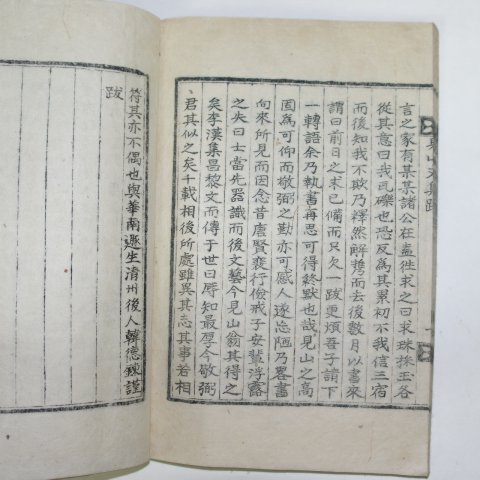 言之家有某某諸公在盍徃求之曰求珠採玉各
從其意曰我瓦礫也恐反爲其累初不我信三宿
而後知我不欺乃釋然解携而去後數月以書來
謂曰前日之求已備而只欠一跋更煩吾子請下
一轉語余乃執書再思可得終默也哉見山之高
固爲可仰而敬弼之勤亦可感人遂忘陋乃畧書
向來所見而因念昔唐賢裴行儉戒子安輩浮露
之失曰士當先器識而後文藝今見山翁其得之
矣李漢集昌黎文而傳于世曰辱知最厚今敬弼
君其似之矣千載相後所處雖異其志其事若相
符其亦不偶也與華南遯生清州後人韓德鍊謹
跋